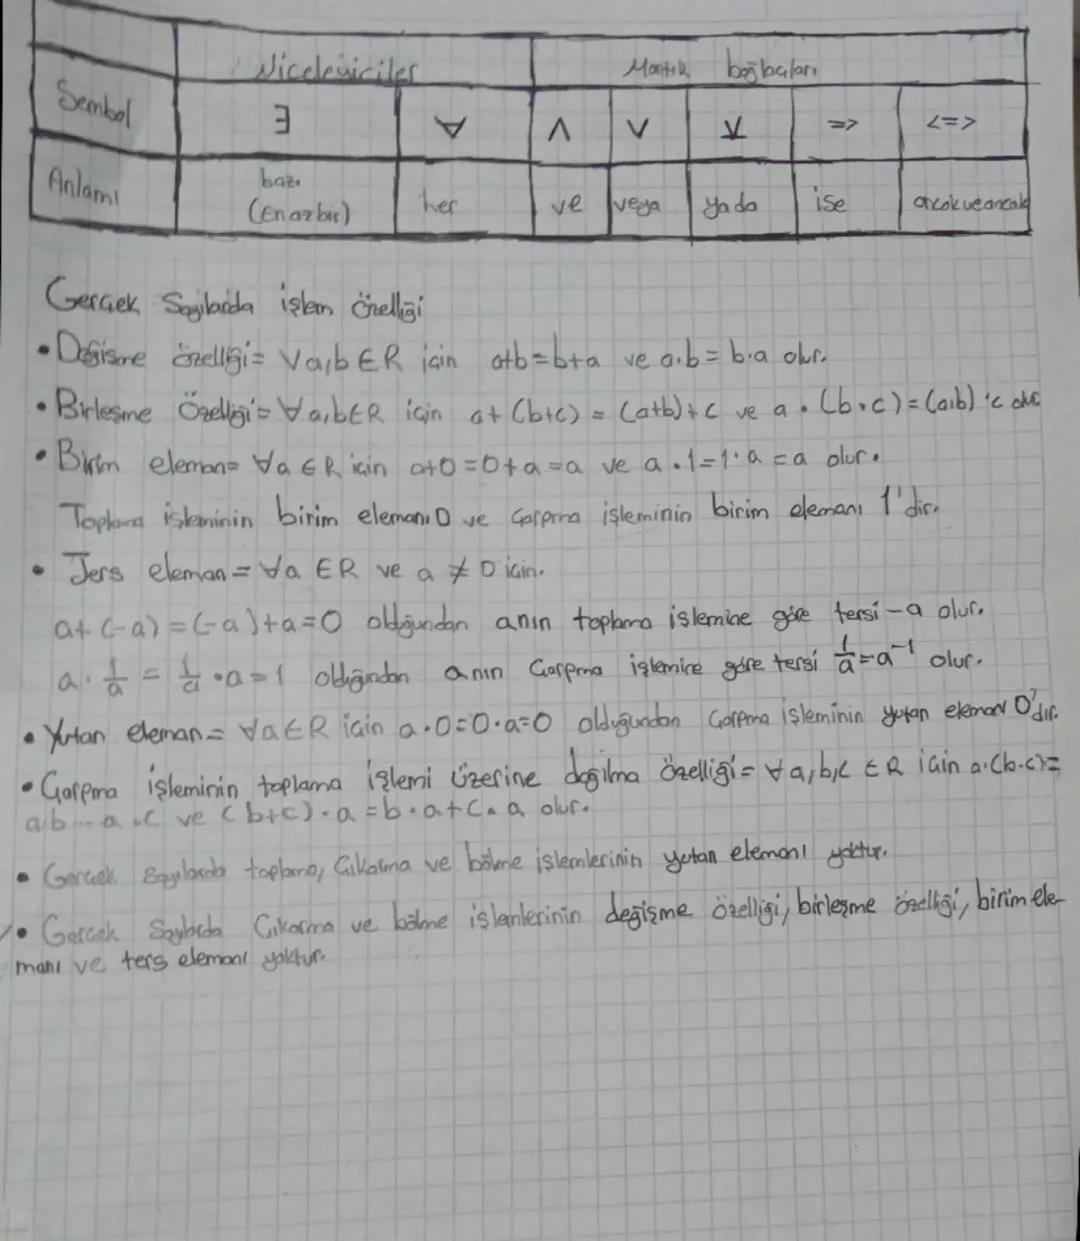 Niceleyiciler Mantık bağlaçları
Sembol ∃ ∀ ∧ ∨ ⊻ => <=>
Anlamı bazı (En az bir) her ve veya yada ise ancak ve ancak
Gerçek Sayılarda işlem özelliği
• Değişme özelliği= ∀a,b ∈ R için a+b=b+a ve a.b=b.a olur.
• Birleşme Özelliği= ∀a,b∈R için a+(b+c)=(a+b)+c ve a.(b.c)=(a.b).c olur
• Birim eleman= ∀a ∈ R için a+0=0+a=a ve a.1=1.a=a olur.
Toplama işleminin birim elemanı 0 ve Çarpma işleminin birim elemanı 1'dir.
• Ters eleman= ∀a ∈R ve a ≠ 0 için.
a+(-a)=(-a)+a=0 olduğundan anın toplama işlemine göre tersi -a olur.
a.1/a = 1/a.a=1 olduğundan anın Çarpma işlemine göre tersi 1/a=a⁻¹ olur.
• Yutan eleman= ∀a∈R için a.0=0.a=0 olduğundan Çarpma işleminin yutan elemanı 0'dır.
• Çarpma işleminin toplama işlemi üzerine dağılma özelliği= ∀a,b,c ∈R için a.(b-c)=
a.b - a.c ve (b+c).a=b.a+c.a olur.
• Gerçek Sayılarda toplama, Çıkarma ve bölme işlemlerinin yutan elemanı yoktur.
• Gerçek Sayılarda Çıkarma ve bölme işlemlerinin değişme özelliği, birleşme özelliği, birim ele-
manı ve ters elemanı yoktur.